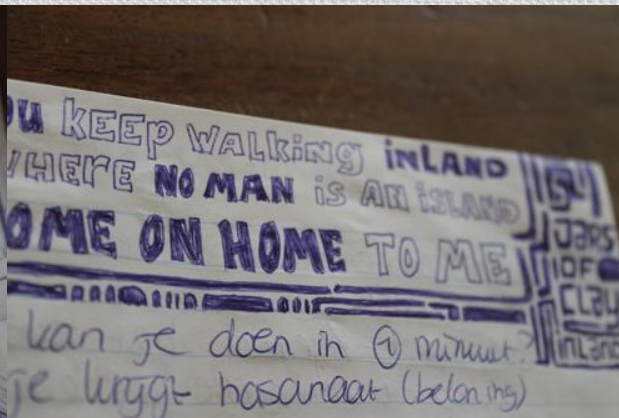 OU KEEP WALKING INLAND
WHERE NO MAN IS AN ISLAND
OME ON HOME TO ME
JARS
OF
CLAY
INLAND
kan je doen in 1 minuut?
je krijgt hasanaat (beloning)